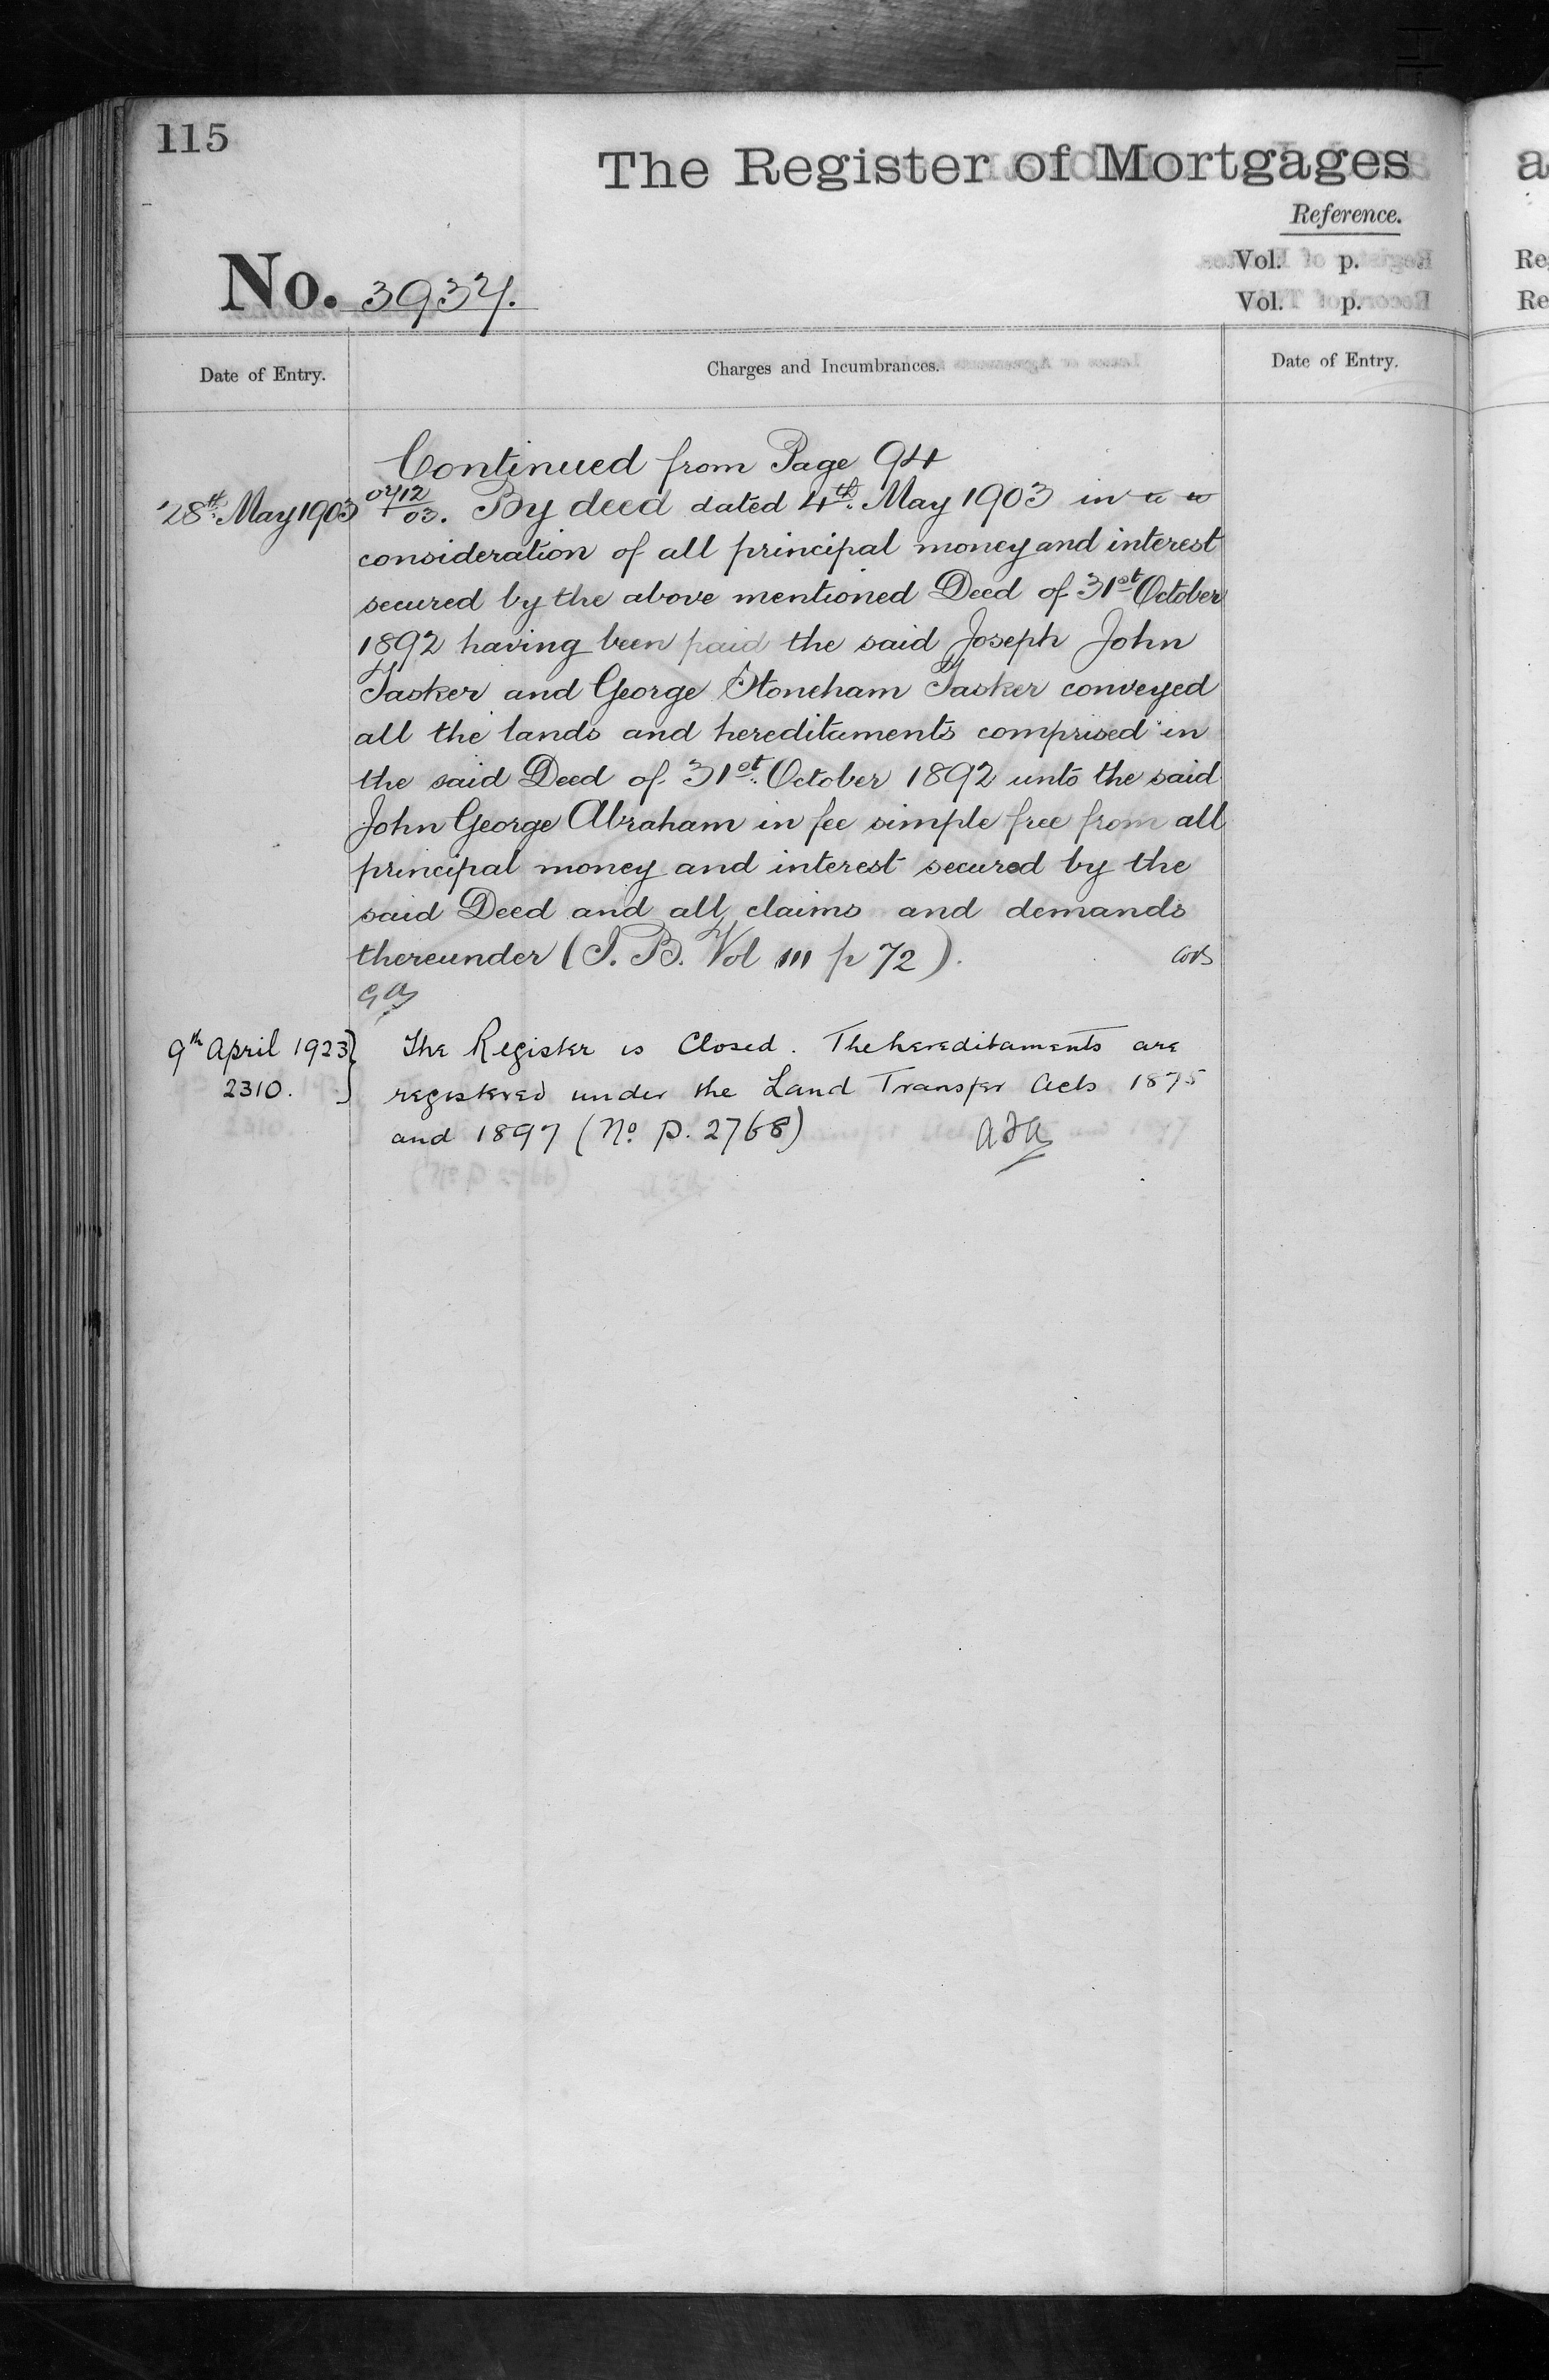 115
The Register of Mortgages
Reference.
Vol. p.
Vol. p.
No. 3937.
Date of Entry.
Charges and Incumbrances.
Date of Entry.
Continued from Page 94
28th May 1903
By deed dated 4th May 1903 in
consideration of all principal money and interest
secured by the above mentioned Deed of 31st October
1892 having been paid the said Joseph John
Tasker and George Stoneham Tasker conveyed
all the lands and hereditaments comprised in
the said Deed of 31st October 1892 unto the said
John George Abraham in fee simple free from all
principal money and interest secured by the
said Deed and all claims and demands
thereunder (I. B. Vol III p 72).
9th April 1923
2310.
The Register is Closed. The hereditaments are
registered under the Land Transfer Acts 1875
and 1897 (No P. 2768)
a
Re
Re